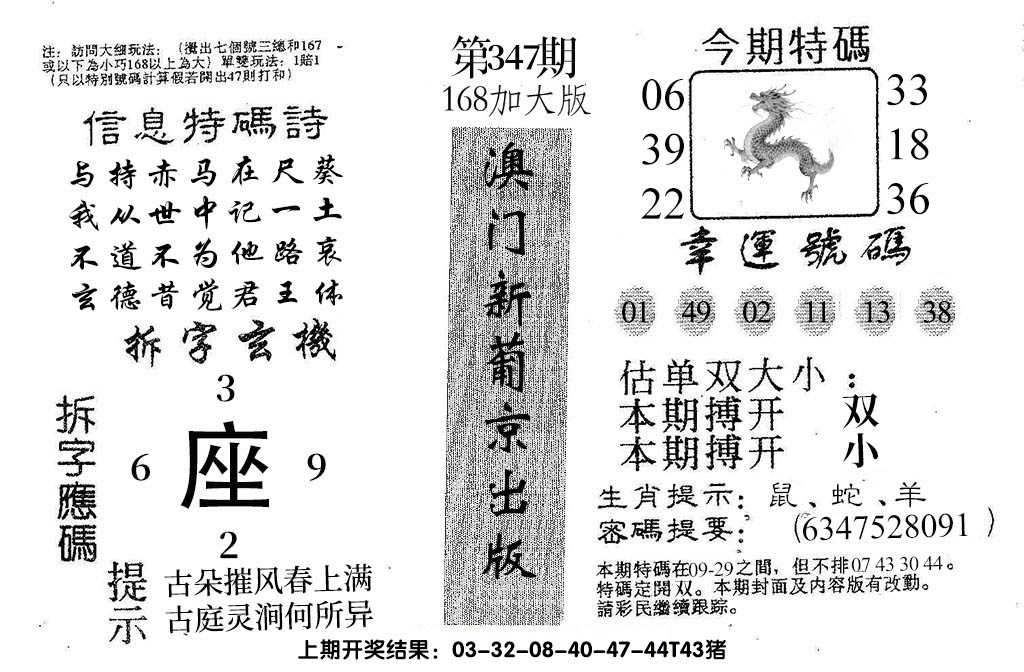 注：訪問大細玩法：（攪出七個號三總和167
或以下為小巧168以上為大）單雙玩法：1賠1
（只以特別號碼計算假若開出47則打和）
信息特碼詩
与持赤马在尺葵
我从世中记一土
不道不为他路哀
玄德昔觉君王体
拆字玄機
拆字應碼
3
6 座 9
2
提示
古朵摧风春上满
古庭灵涧何所异
第347期
168加大版
澳门新葡京出版
今期特碼
06 33
39 18
22 36
幸運號碼
01 49 02 11 13 38
估单双大小：
本期搏开 双
本期搏开 小
生肖提示：鼠、蛇、羊
密碼提要：（6347528091）
本期特碼在09-29之間，但不排07 43 30 44。
特碼定開双。本期封面及内容版有改動。
請彩民繼續跟踪。
上期开奖结果：03-32-08-40-47-44T43猪